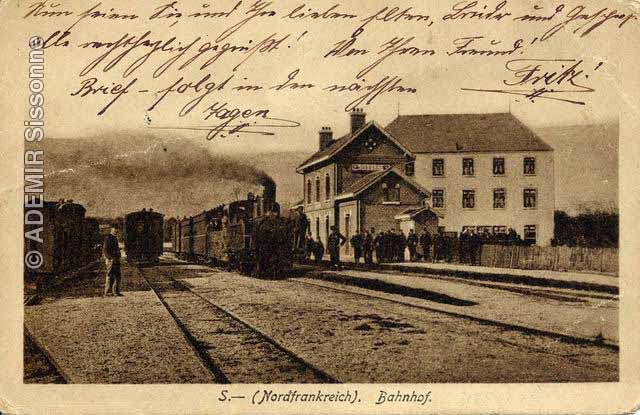 Nun seien Sie und Ihre lieben Eltern, Brüder und Geschw.
alle recht herzlich gegrüßt! Von Ihrem Freund! Fritz!
Brief - folgt in den nächsten
Tagen
© ADEMIR Sissonne
S.— (Nordfrankreich). Bahnhof.